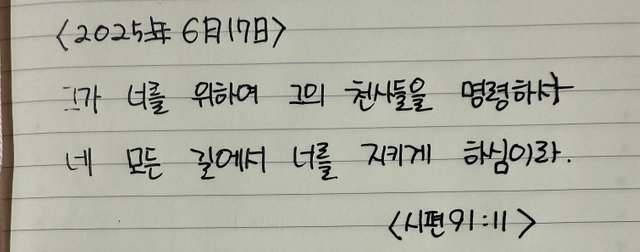 <2025年 6月17日>
그가 너를 위하여 그의 천사들을 명령하사
네 모든 길에서 너를 지키게 하심이라.
<시편91:11>